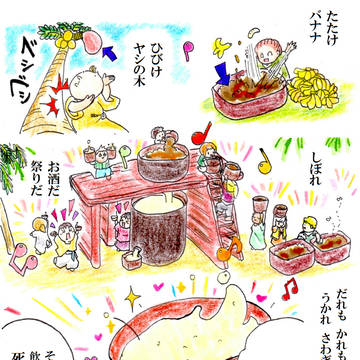 たたけ
バナナ
ひびけ
ヤシの木
ベシッ
ベシッ
しぼれ
お酒だ
祭りだ
だれも かれも
うかれ さわぎ
そ
飲
死